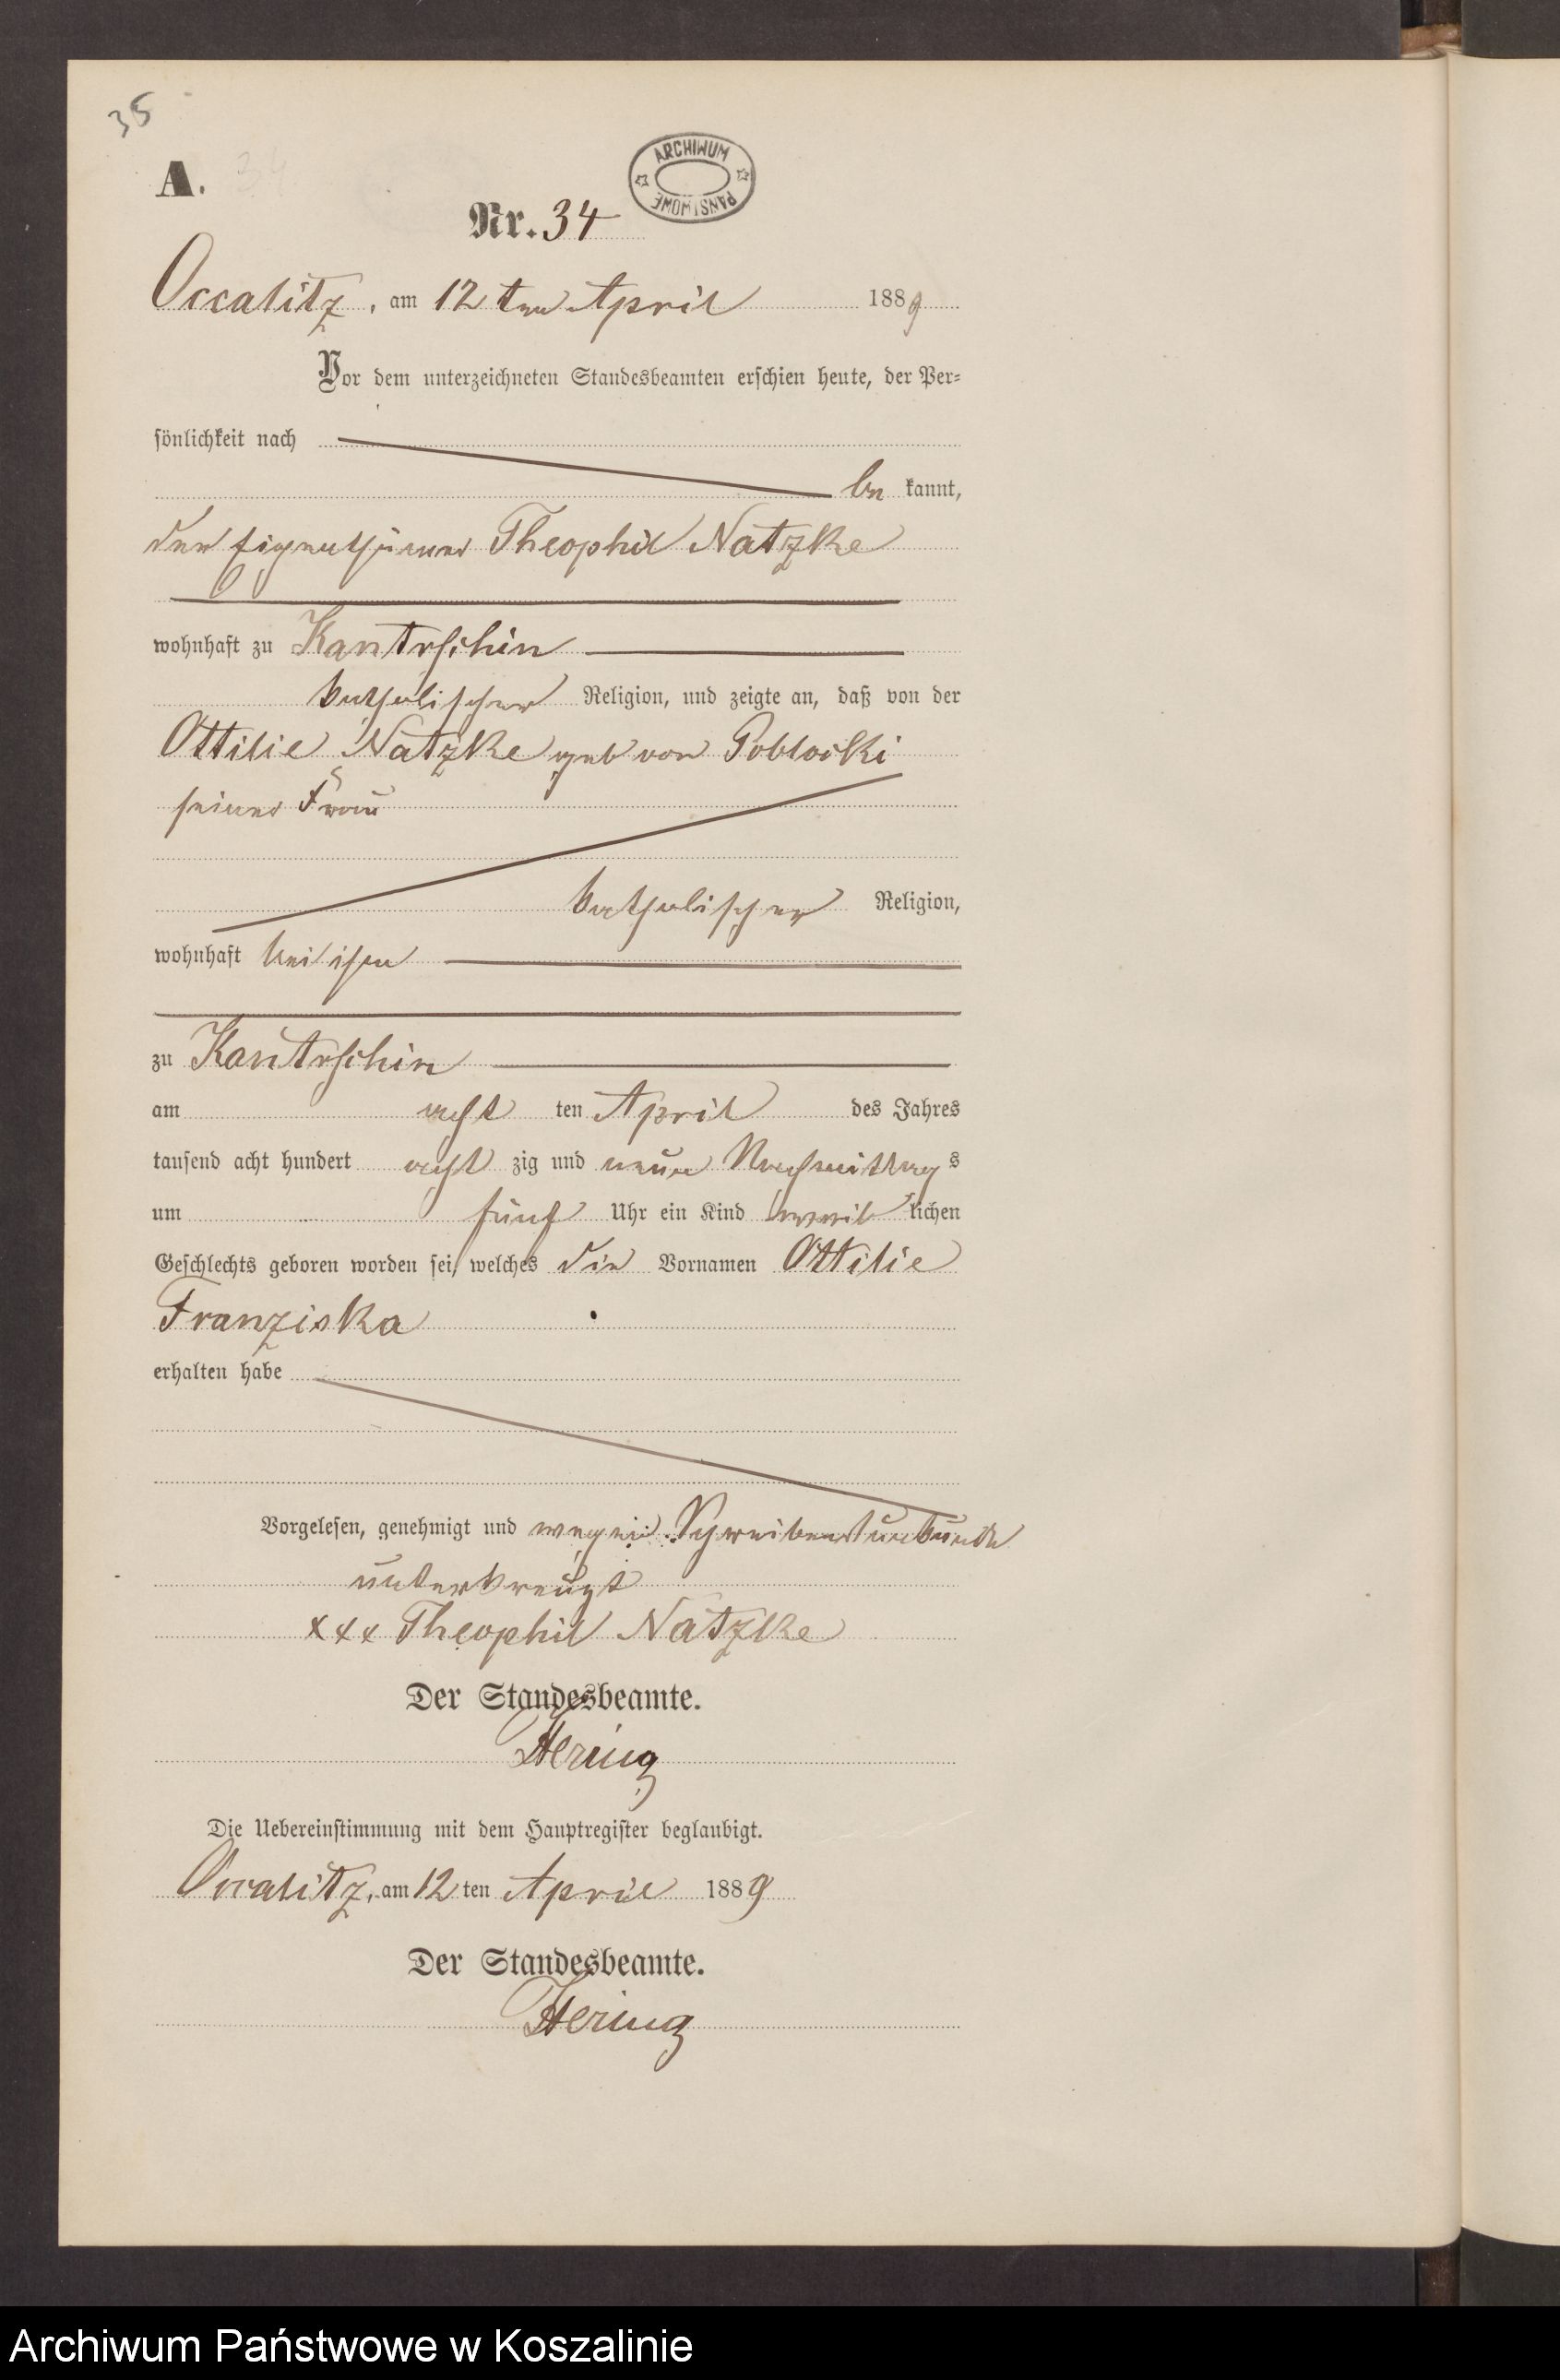 35
A. 34
ARCHIWUM PAŃSTWOWE
Nr. 34
Occalitz, am 12ten April 1889
Vor dem unterzeichneten Standesbeamten erschien heute, der Per-
sönlichkeit nach
be kannt,
der Eigenthümer Theophil Natzke
wohnhaft zu Kantrschin
katholischer Religion, und zeigte an, daß von der
Ottilie Natzke geb von Poblocki
seiner Frau
katholischer Religion,
wohnhaft bei ihm
zu Kantrschin
am acht ten April des Jahres
tausend acht hundert acht zig und neun Nachmittags
um fünf Uhr ein Kind weib lichen
Geschlechts geboren worden sei, welches die Vornamen Ottilie
Franziska
erhalten habe
Vorgelesen, genehmigt und wegen Schreibensunkunde
unterkreuzt
xxx Theophil Natzke
Der Standesbeamte.
Hering
Die Uebereinstimmung mit dem Hauptregister beglaubigt.
Occalitz, am 12 ten April 1889
Der Standesbeamte.
Hering
Archiwum Państwowe w Koszalinie